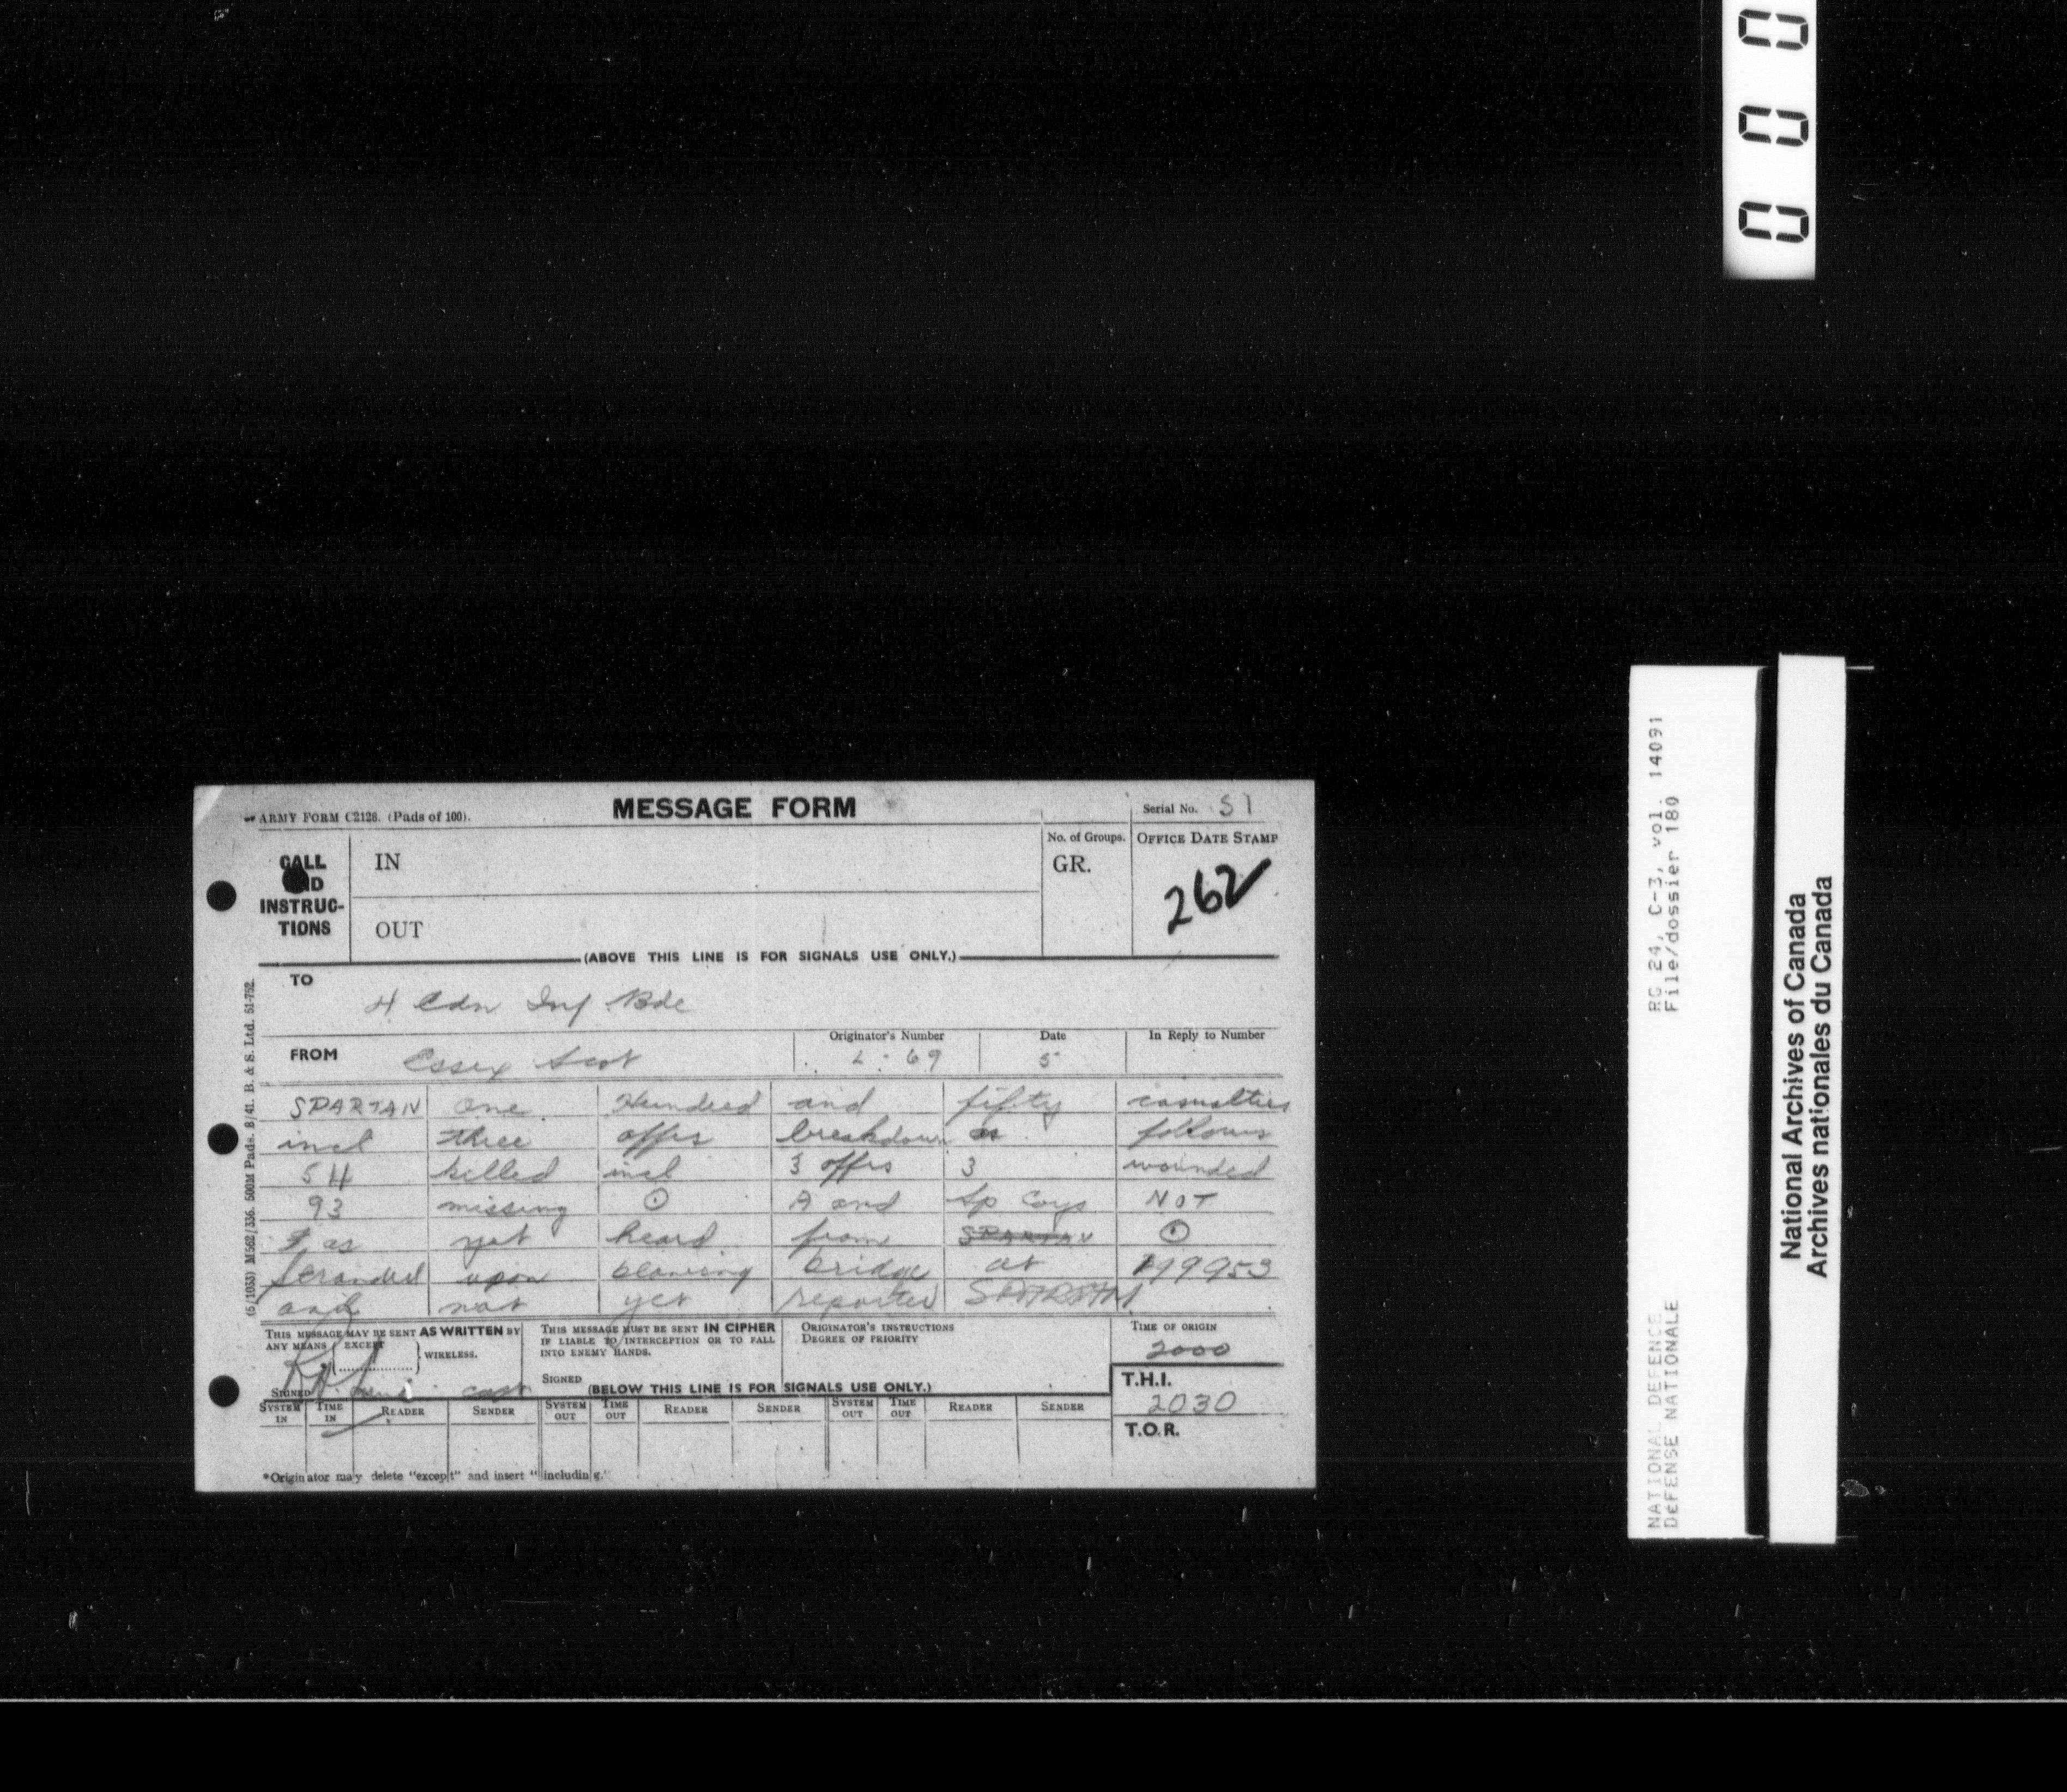 0 0 0
ARMY FORM C2128. (Pads of 100).
MESSAGE FORM
Serial No. 51
CALL AND INSTRUC-TIONS
IN
OUT
No. of Groups.
GR.
OFFICE DATE STAMP
262
(ABOVE THIS LINE IS FOR SIGNALS USE ONLY.)
TO
4 Cdn Inf Bde
FROM
Essex Scot
Originator's Number
L-69
Date
5
In Reply to Number
SPARTAN one Hundred and fifty casualties
incl three offrs breakdown as follows
54 killed incl 3 offrs 3 wounded
93 missing ⊙ A and Sp Coys NOT
as yet heard from SPARTAN ⊙
stranded upon blowing bridge at 199953
and not yet reported SPARTAN
THIS MESSAGE MAY BE SENT AS WRITTEN BY
ANY MEANS EXCEPT WIRELESS.
SIGNED capt
THIS MESSAGE MUST BE SENT IN CIPHER
IF LIABLE TO INTERCEPTION OR TO FALL
INTO ENEMY HANDS.
SIGNED
ORIGINATOR'S INSTRUCTIONS
DEGREE OF PRIORITY
TIME OF ORIGIN
2000
T.H.I.
2030
T.O.R.
(BELOW THIS LINE IS FOR SIGNALS USE ONLY.)
SYSTEM IN TIME IN READER SENDER SYSTEM OUT TIME OUT READER SENDER SYSTEM OUT TIME OUT READER SENDER
*Originator may delete "except" and insert "including."
(6/1033) M562/336. 500M Pads. 8/41. B. & S. Ltd. 51-752.
RG 24, C-3, vol. 14091
File/dossier 180
NATIONAL DEFENCE
DÉFENSE NATIONALE
National Archives of Canada
Archives nationales du Canada